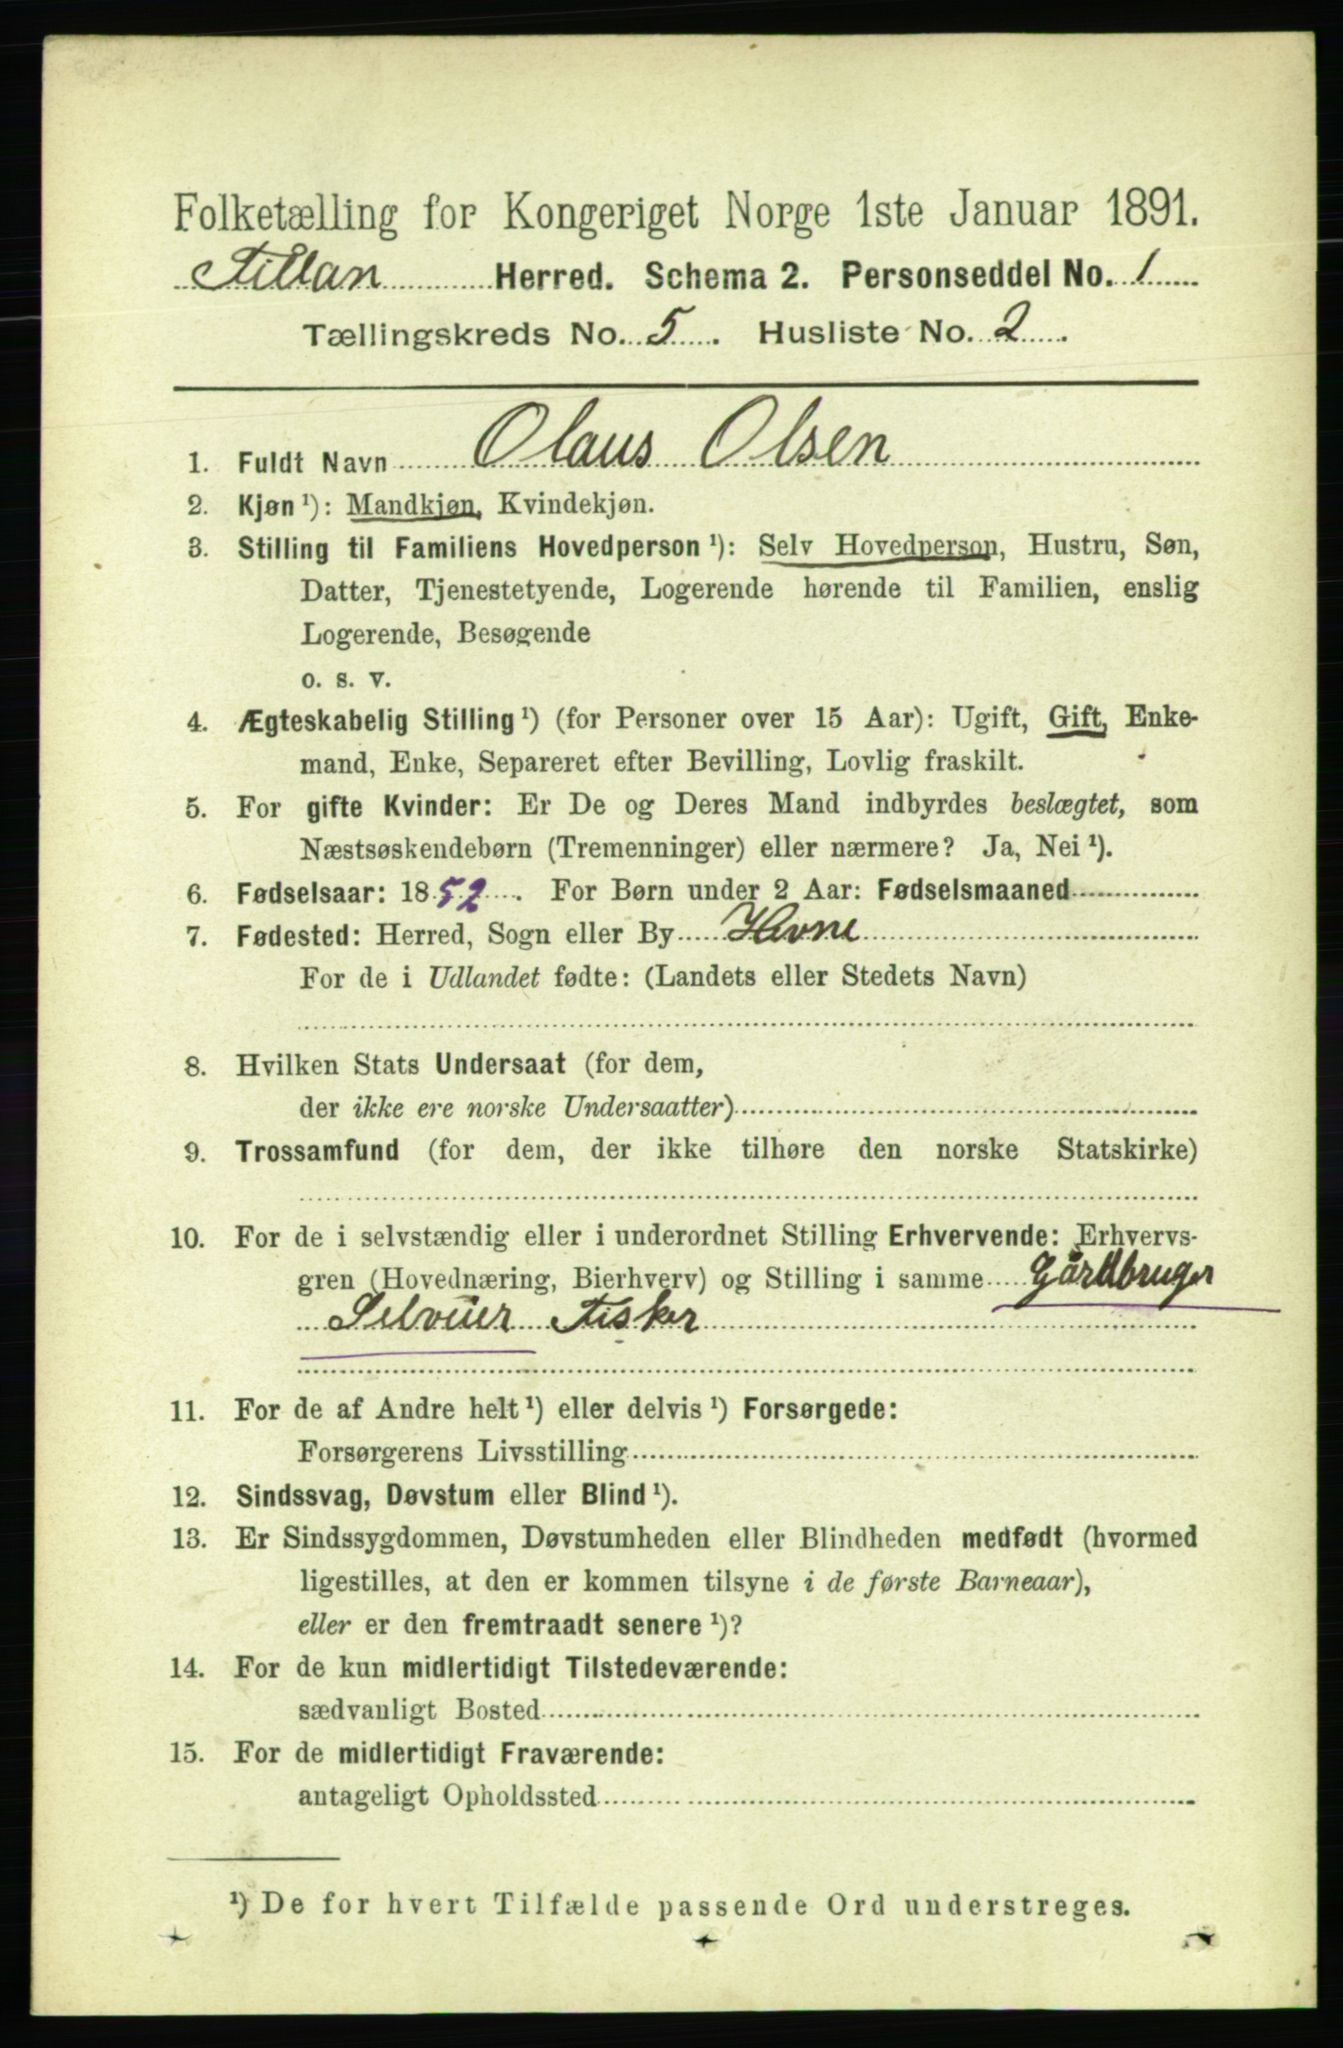 Folketælling for Kongeriget Norge 1ste Januar 1891.
Fillan Herred. Schema 2. Personseddel No. 1
Tællingskreds No. 5. Husliste No. 2.
1. Fuldt Navn Olaus Olsen
2. Kjøn ¹): Mandkjøn, Kvindekjøn.
3. Stilling til Familiens Hovedperson ¹): Selv Hovedperson, Hustru, Søn,
Datter, Tjenestetyende, Logerende hørende til Familien, enslig
Logerende, Besøgende
o. s. v.
4. Ægteskabelig Stilling ¹) (for Personer over 15 Aar): Ugift, Gift, Enke-
mand, Enke, Separeret efter Bevilling, Lovlig fraskilt.
5. For gifte Kvinder: Er De og Deres Mand indbyrdes beslægtet, som
Næstsøskendebørn (Tremenninger) eller nærmere? Ja, Nei ¹).
6. Fødselsaar: 1852. For Børn under 2 Aar: Fødselsmaaned
7. Fødested: Herred, Sogn eller By Hevne
For de i Udlandet fødte: (Landets eller Stedets Navn)
8. Hvilken Stats Undersaat (for dem,
der ikke ere norske Undersaatter)
9. Trossamfund (for dem, der ikke tilhøre den norske Statskirke)
10. For de i selvstændig eller i underordnet Stilling Erhvervende: Erhvervs-
gren (Hovednæring, Bierhverv) og Stilling i samme Gårdbruger
Selveier Fisker
11. For de af Andre helt ¹) eller delvis ¹) Forsørgede:
Forsørgerens Livsstilling
12. Sindssvag, Døvstum eller Blind ¹).
13. Er Sindssygdommen, Døvstumheden eller Blindheden medfødt (hvormed
ligestilles, at den er kommen tilsyne i de første Barneaar),
eller er den fremtraadt senere ¹)?
14. For de kun midlertidigt Tilstedeværende:
sædvanligt Bosted
15. For de midlertidigt Fraværende:
antageligt Opholdssted
¹) De for hvert Tilfælde passende Ord understreges.